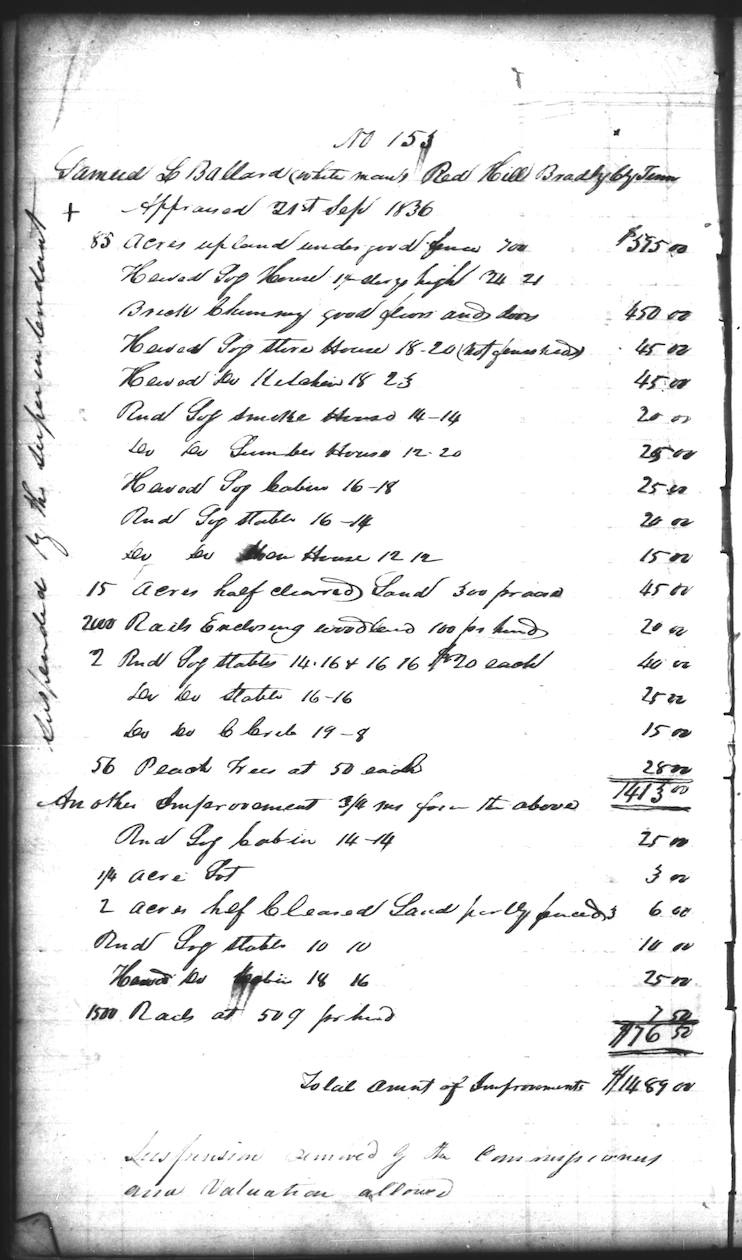 No 153
Samuel L Ballard (white man) Red Hill Bradly Cy Tenn
+ Appraised 21st Sep 1836
85 Acres upland under good fence 700 $595 00
Hewed Log House 14 logs high 24 21
Brick Chimney good floors and doors 450 00
Hewed Log Store House 18-20 (not finished) 45 00
Hewed Do Kitchen 18 23 45 00
Rnd Log Smoke House 14-14 20 00
Do Do Lumber House 12-20 25 00
Hewed Log Cabin 16-18 25 00
Rnd Log Stable 16-14 20 00
Do Do Hen House 12 12 15 00
15 Acres half cleared Land 300 pr acre 45 00
2000 Rails Enclosing woodland 100 pr hund 20 00
2 Rnd Log Stables 14-16 & 16 16 $20 each 40 00
Do Do Stable 16-16 25 00
Do Do C Crib 19-8 15 00
56 Peach Trees at 50 each 28 00
1413 00
Another Improvement 3/4 ms from the above
Rnd Log Cabin 14-14 25 00
1/4 acre Lot 3 00
2 acres half Cleared Land partly fenced 3 6 00
Rnd Log Stable 10 10 10 00
Hewed Do Cabin 18 16 25 00
1500 Rails at 50 pr hund 7 50
$76 50
Total Amnt of Improvments $1489 00
Suspension removed by the Commissioners
and Valuation allowed
Suspended by the Superintendant